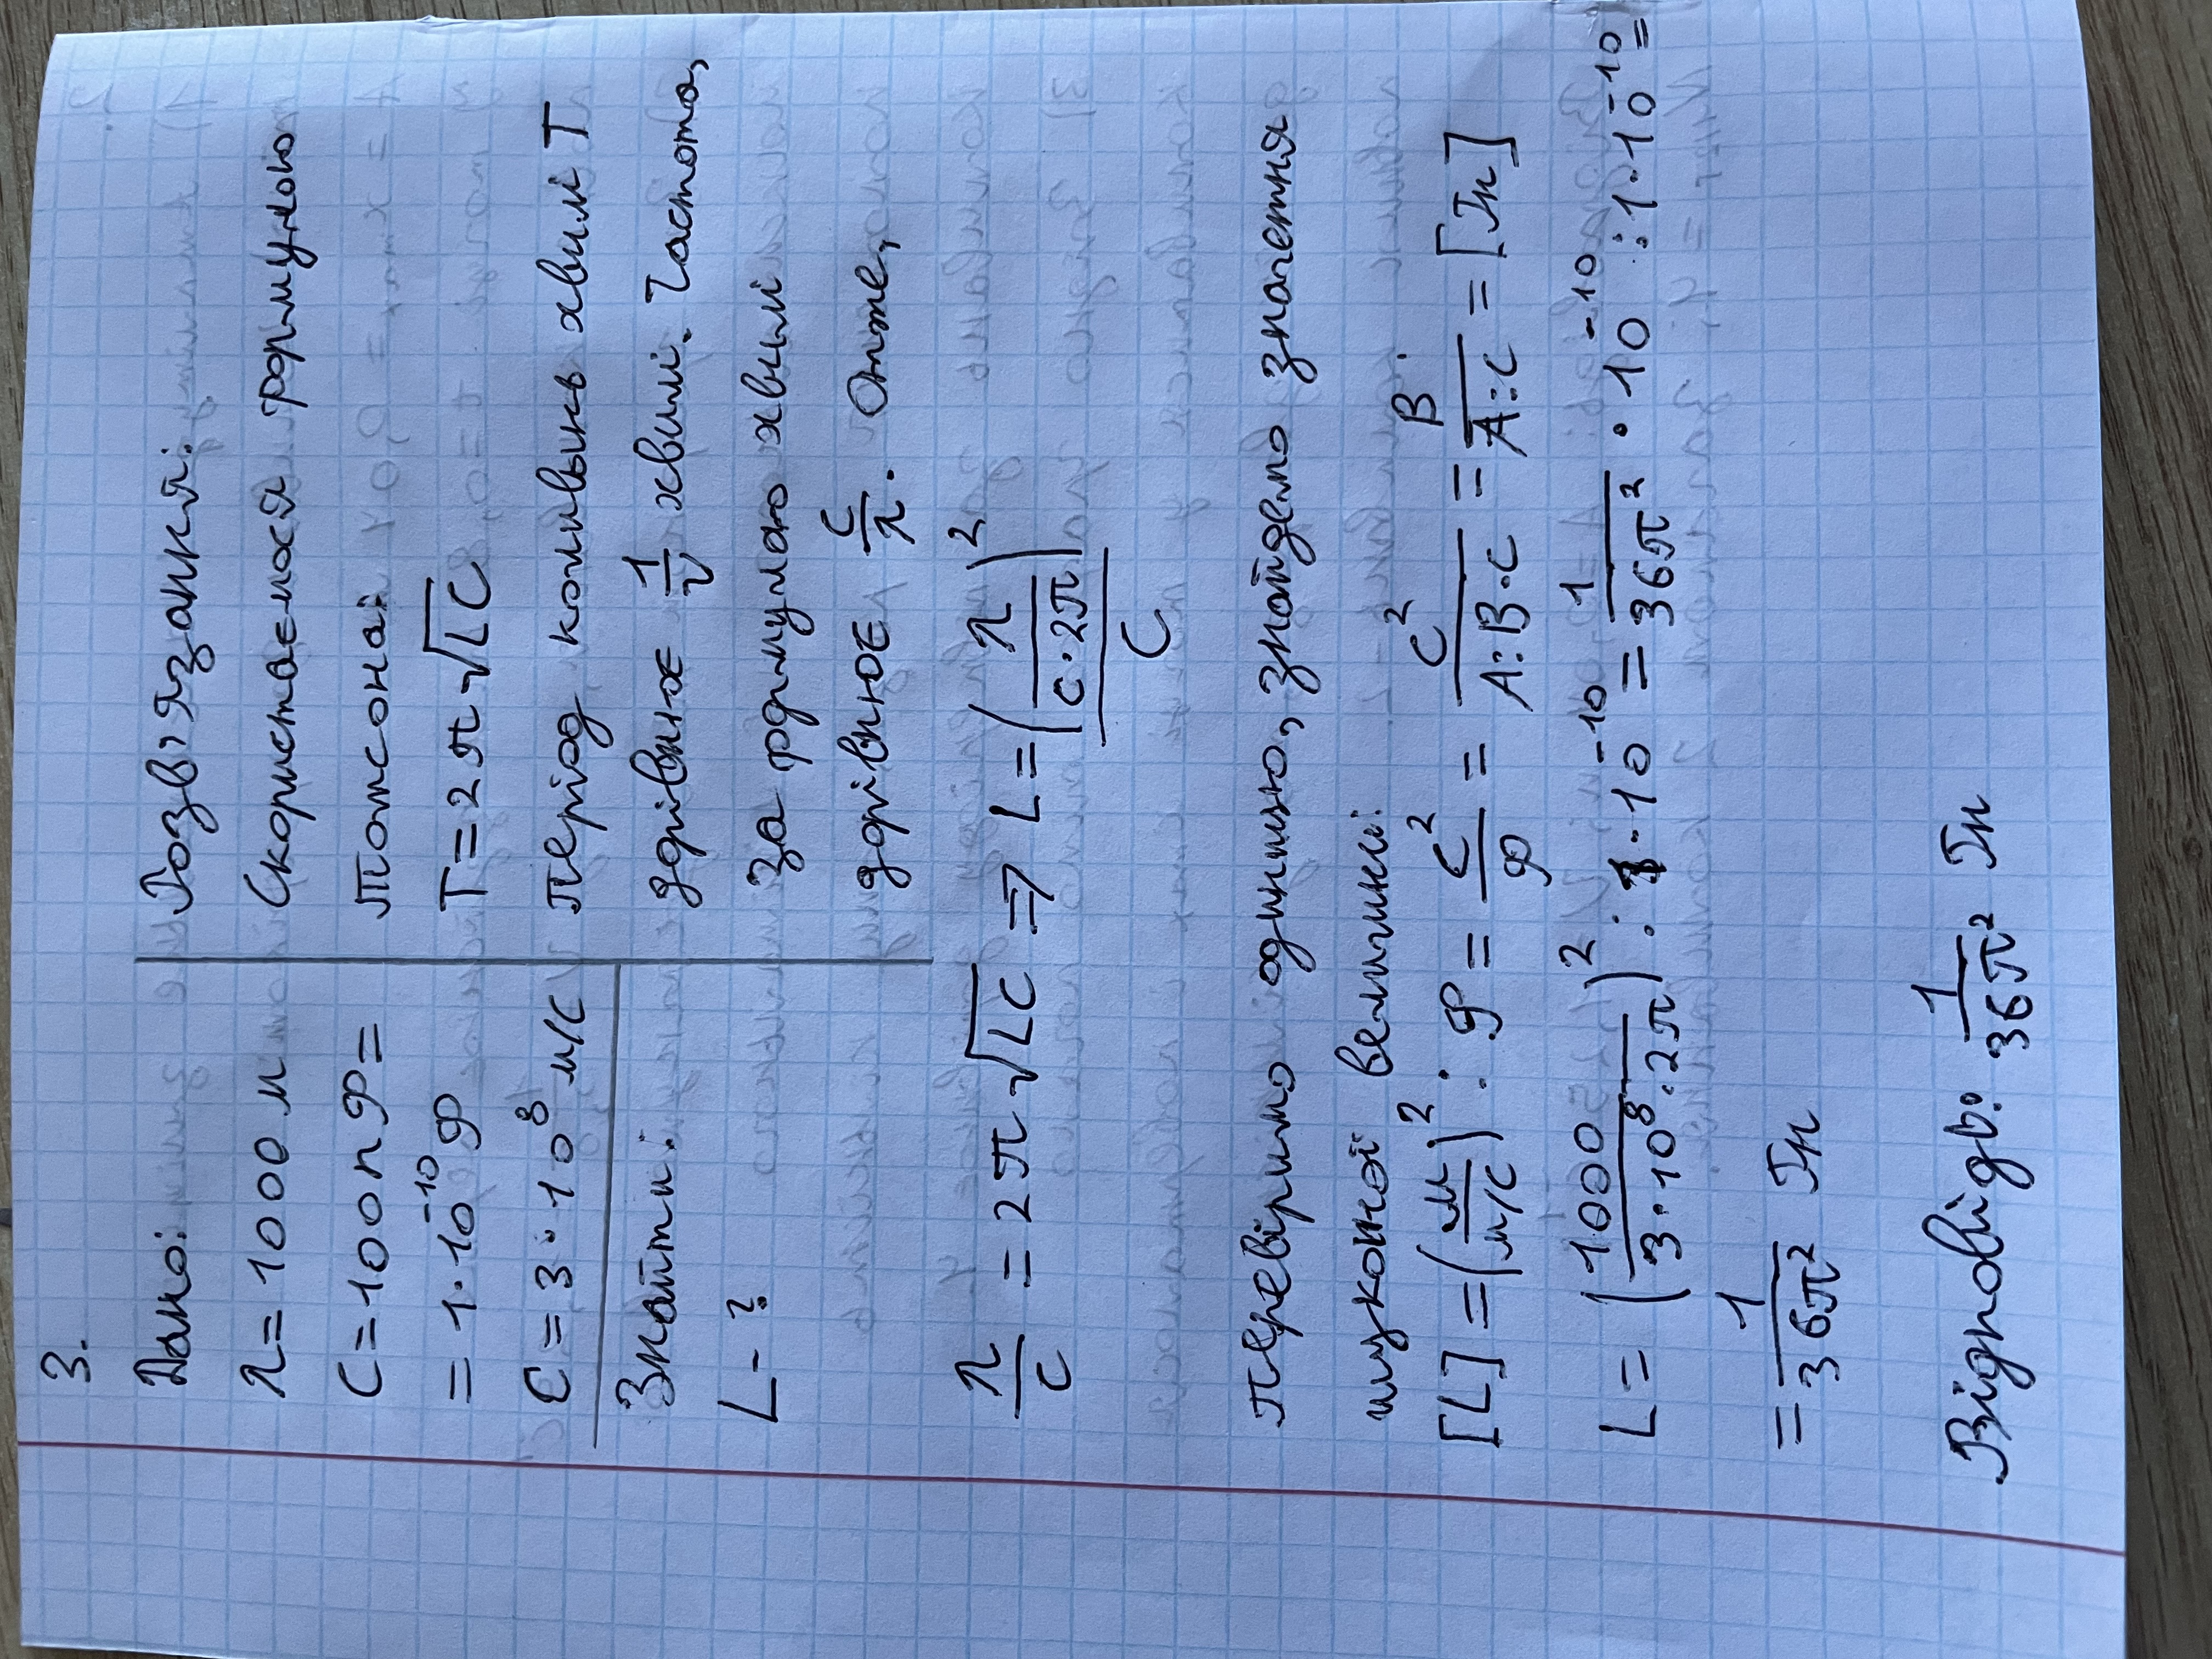 3.
Дано:
λ=1000 м
C=100пФ=
=1·10⁻¹⁰Ф
c=3·10⁸ м/с
Знайти:
L-?
Розв'язання:
Скористаємося формулою
Томсона:
T=2π√LC
Період коливань хвилі T
дрівнює 1/ν хвилі. Частота,
за формулою хвилі
дорівнює c/λ. Отже,
λ/c = 2π√LC => L=(λ/(c·2π))²/C
Перевіримо одиницю, знайдемо значення
шуканої величини:
[L]=(м/(м/с))² : Ф = с²/Ф = с²/(А:В·с) = В/(А:с) = [Гн]
L = (1000/(3·10⁸·2π))² : 1·10⁻¹⁰ = 1/(36π²) · 10⁻¹⁰ : 1·10⁻¹⁰ =
= 1/(36π²) Гн
Відповідь: 1/(36π²) Гн